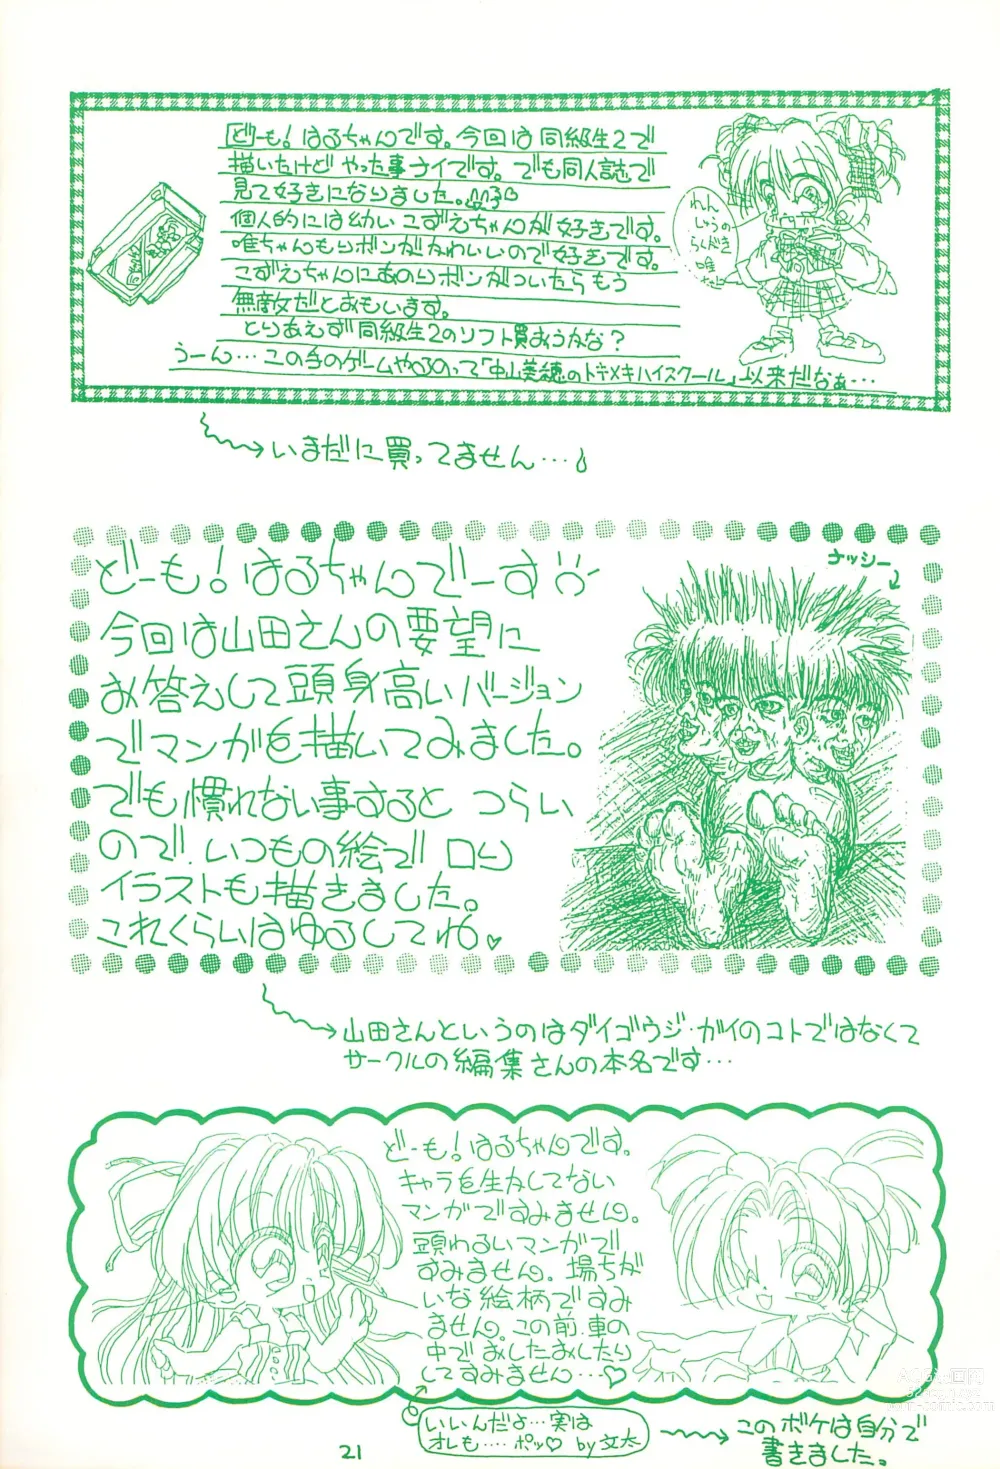 どーも!はるちゃんです。今回は同級生2で
描いたけどやった事ナイです。でも同人誌で
見て好きになりました。
個人的には幼いこずえちゃんが好きです。
唯ちゃんもリボンがかわいいので好きです。
こずえちゃんにあのリボンがついたらもう
無敵だとおもいます。
とりあえず同級生2のソフト買おうかな?
うーん…この手のゲームやるのって「中山美穂のトキメキハイスクール」以来だなぁ…
れん
しゅうの
らくがき
唯
いまだに買ってません…
どーも!はるちゃんでーす
ナッシー
今回は山田さんの要望に
お答えして頭身高いバージョン
でマンガを描いてみました。
でも慣れない事すると つらい
ので、いつもの絵で ロリ
イラストも描きました。
これくらいはゆるしてね♥
山田さんというのはダイゴウジ・ガイのコトではなくて
サークルの編集さんの本名です…
どーも!はるちゃんです。
キャラを生かしてない
マンガですみません。
頭わるいマンガで
すみません。場ちが
いな絵柄ですみ
ません。この前、車の
中でおしたおしたり
してすみません…♡
いいんだよ…実は
オレも‥‥ポッ♡ by文太
このボケは自分で
書きました。
21